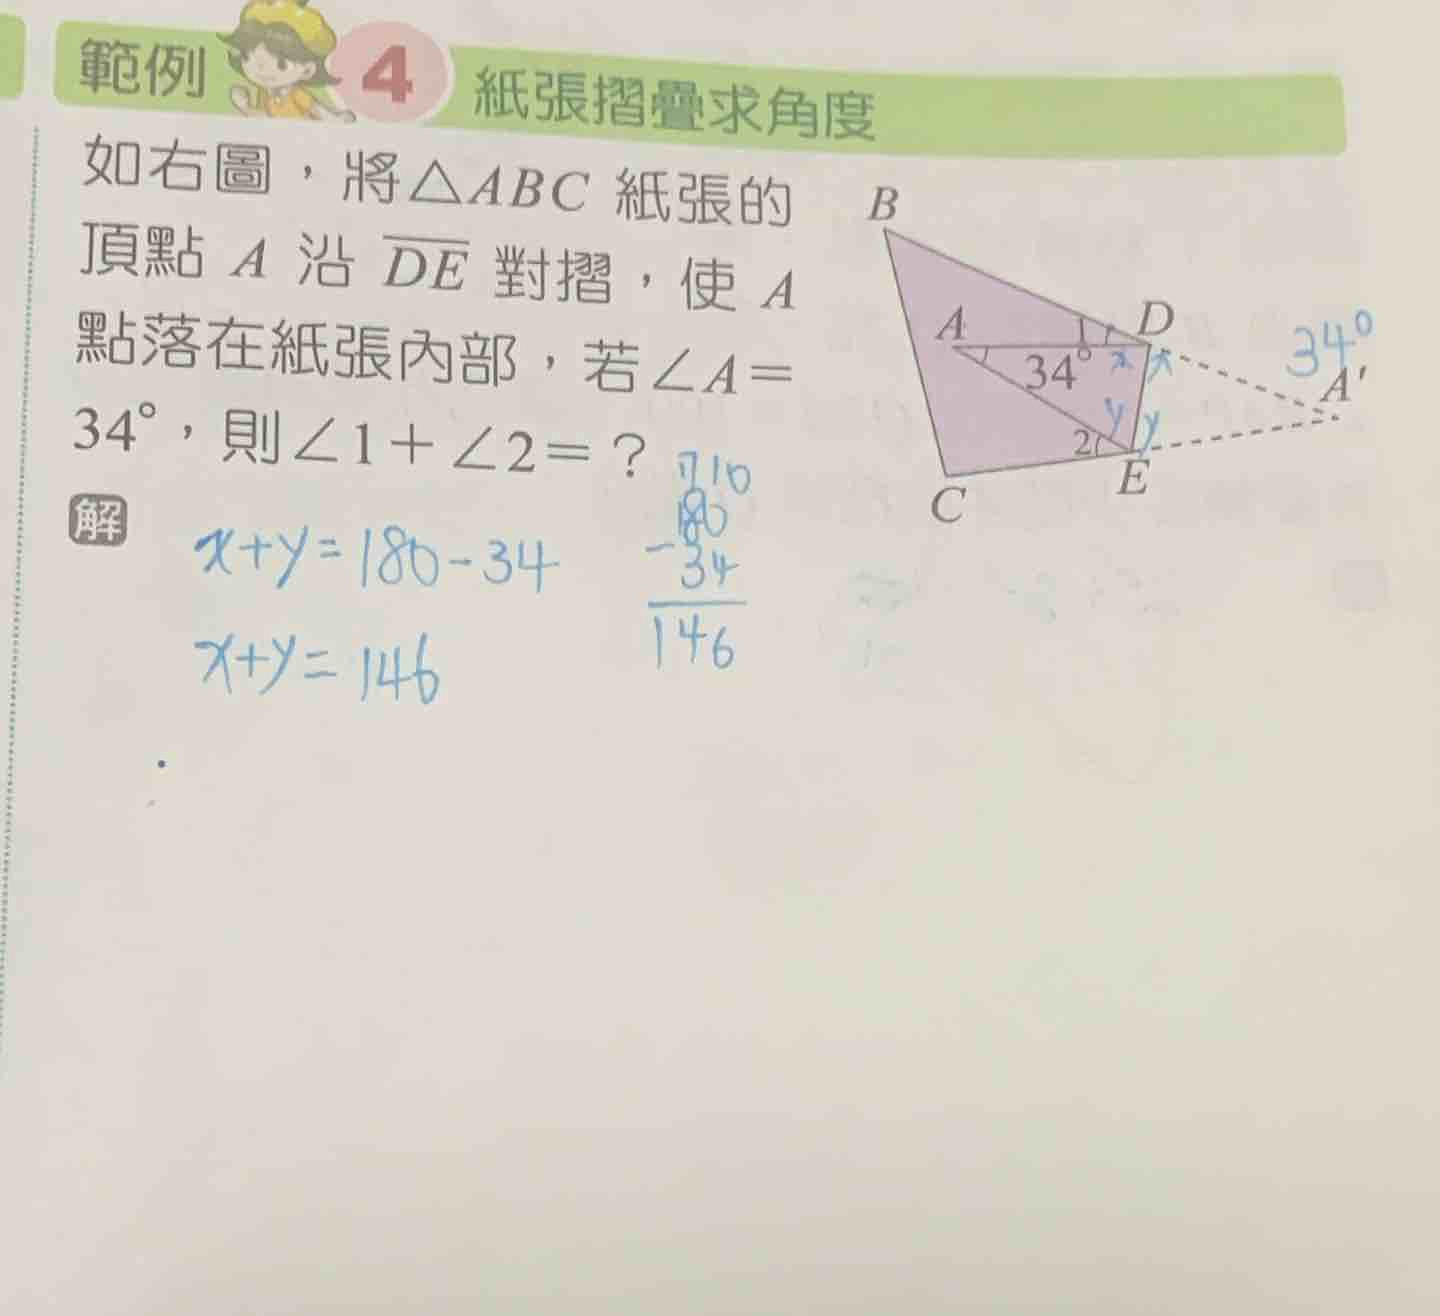 範例 4 紙張摺疊求角度
如右圖，將△ABC 紙張的
頂點 A 沿 DE 對摺，使 A
點落在紙張內部，若∠A＝
34°，則∠1＋∠2＝？
解
x+y=180-34
x+y=146
710
180
-34
146
B
A
1
D
34°
x
x
34°
A'
y
y
2
E
C